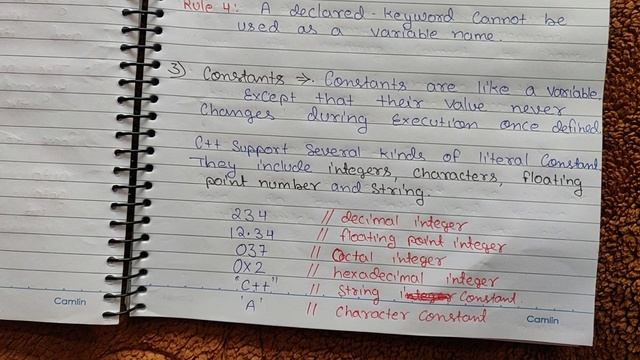 Rule 4: A declared keyword cannot be
used as a variable name.
3) Constants ⇒ Constants are like a variable.
Except that their value never
Changes during Execution once defined
C++ Support Several kinds of literal Constant
They include integers, characters, floating
point number and string.
234 // decimal integer
12.34 // floating point integer
037 // Octal integer
0X2 // hexadecimal integer
"C++" // string Constant.
'A' // character constant
Camlin
Camlin